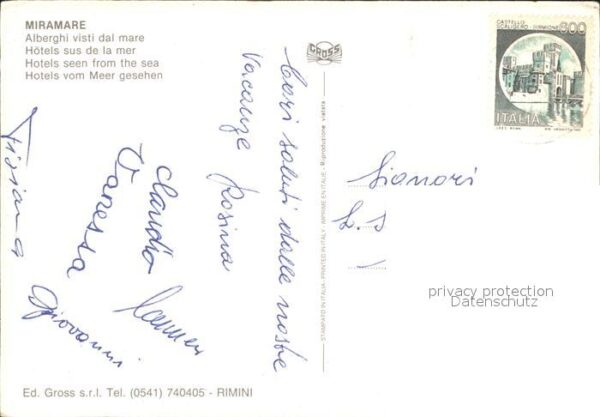 MIRAMARE
Alberghi visti dal mare
Hôtels sus de la mer
Hotels seen from the sea
Hotels vom Meer gesehen
GROSS
CASTELLO
SCALIGERO - SIRMIONE
600
ITALIA
Cari saluti dalle nostre
Vacanze Rosina
Claudia
Vanessa
Giovanni
Tiziana
STAMPATO IN ITALIA - PRINTED IN ITALY - IMPRIME EN ITALIE - Riproduzione vietata
Signori
L. S
privacy protection
Datenschutz
Ed. Gross s.r.l. Tel. (0541) 740405 - RIMINI